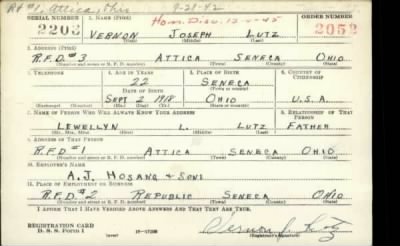 Rt #1, Attica, Ohio 9-21-42
SERIAL NUMBER 1. NAME (Print) Hon. Dis. 12-4-45 ORDER NUMBER
2203 VERNON JOSEPH LUTZ 2052
(First) (Middle) (Last)
2. ADDRESS (Print)
R.F.D.#3 ATTICA SENECA OHIO
(Number and street or R. F. D. number) (Town) (County) (State)
3. TELEPHONE 4. AGE IN YEARS 5. PLACE OF BIRTH 6. COUNTRY OF CITIZENSHIP
22 SENECA
DATE OF BIRTH (Town or county)
SEPT 2 1918 OHIO U.S.A.
(Exchange) (Number) (Mo.) (Day) (Yr.) (State or country)
7. NAME OF PERSON WHO WILL ALWAYS KNOW YOUR ADDRESS 8. RELATIONSHIP OF THAT PERSON
LEWELLYN L. LUTZ FATHER
(Mr., Mrs., Miss) (First) (Middle) (Last)
9. ADDRESS OF THAT PERSON
R.F.D#1 ATTICA SENECA OHIO
(Number and street or R. F. D. number) (Town) (County) (State)
10. EMPLOYER'S NAME
A.J. HOSANG & SONS
11. PLACE OF EMPLOYMENT OR BUSINESS
R.F.D.#2 REPUBLIC SENECA OHIO
(Number and street or R. F. D. number) (Town) (County) (State)
I AFFIRM THAT I HAVE VERIFIED ABOVE ANSWERS AND THAT THEY ARE TRUE.
REGISTRATION CARD
D. S. S. FORM 1 (over) Vernon J. Lutz
(Registrant's signature)